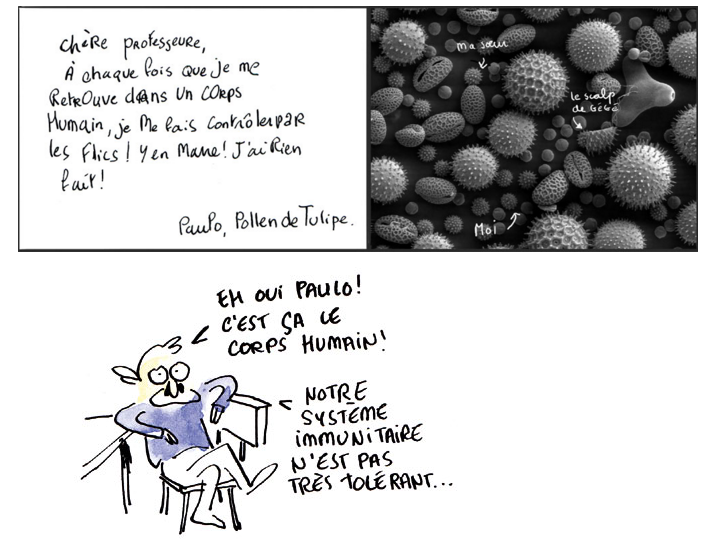 Chère professeure,
À chaque fois que je me
Retrouve dans un corps
Humain, je me fais contrôler par
les flics ! Y en marre ! J'ai rien
fait !
Paulo, Pollen de Tulipe.
ma sœur
le scalp
de Gégé
Moi
EH OUI PAULO !
C'EST ÇA LE
CORPS HUMAIN !
NOTRE
SYSTEME
IMMUNITAIRE
N'EST PAS
TRÈS TOLÉRANT...